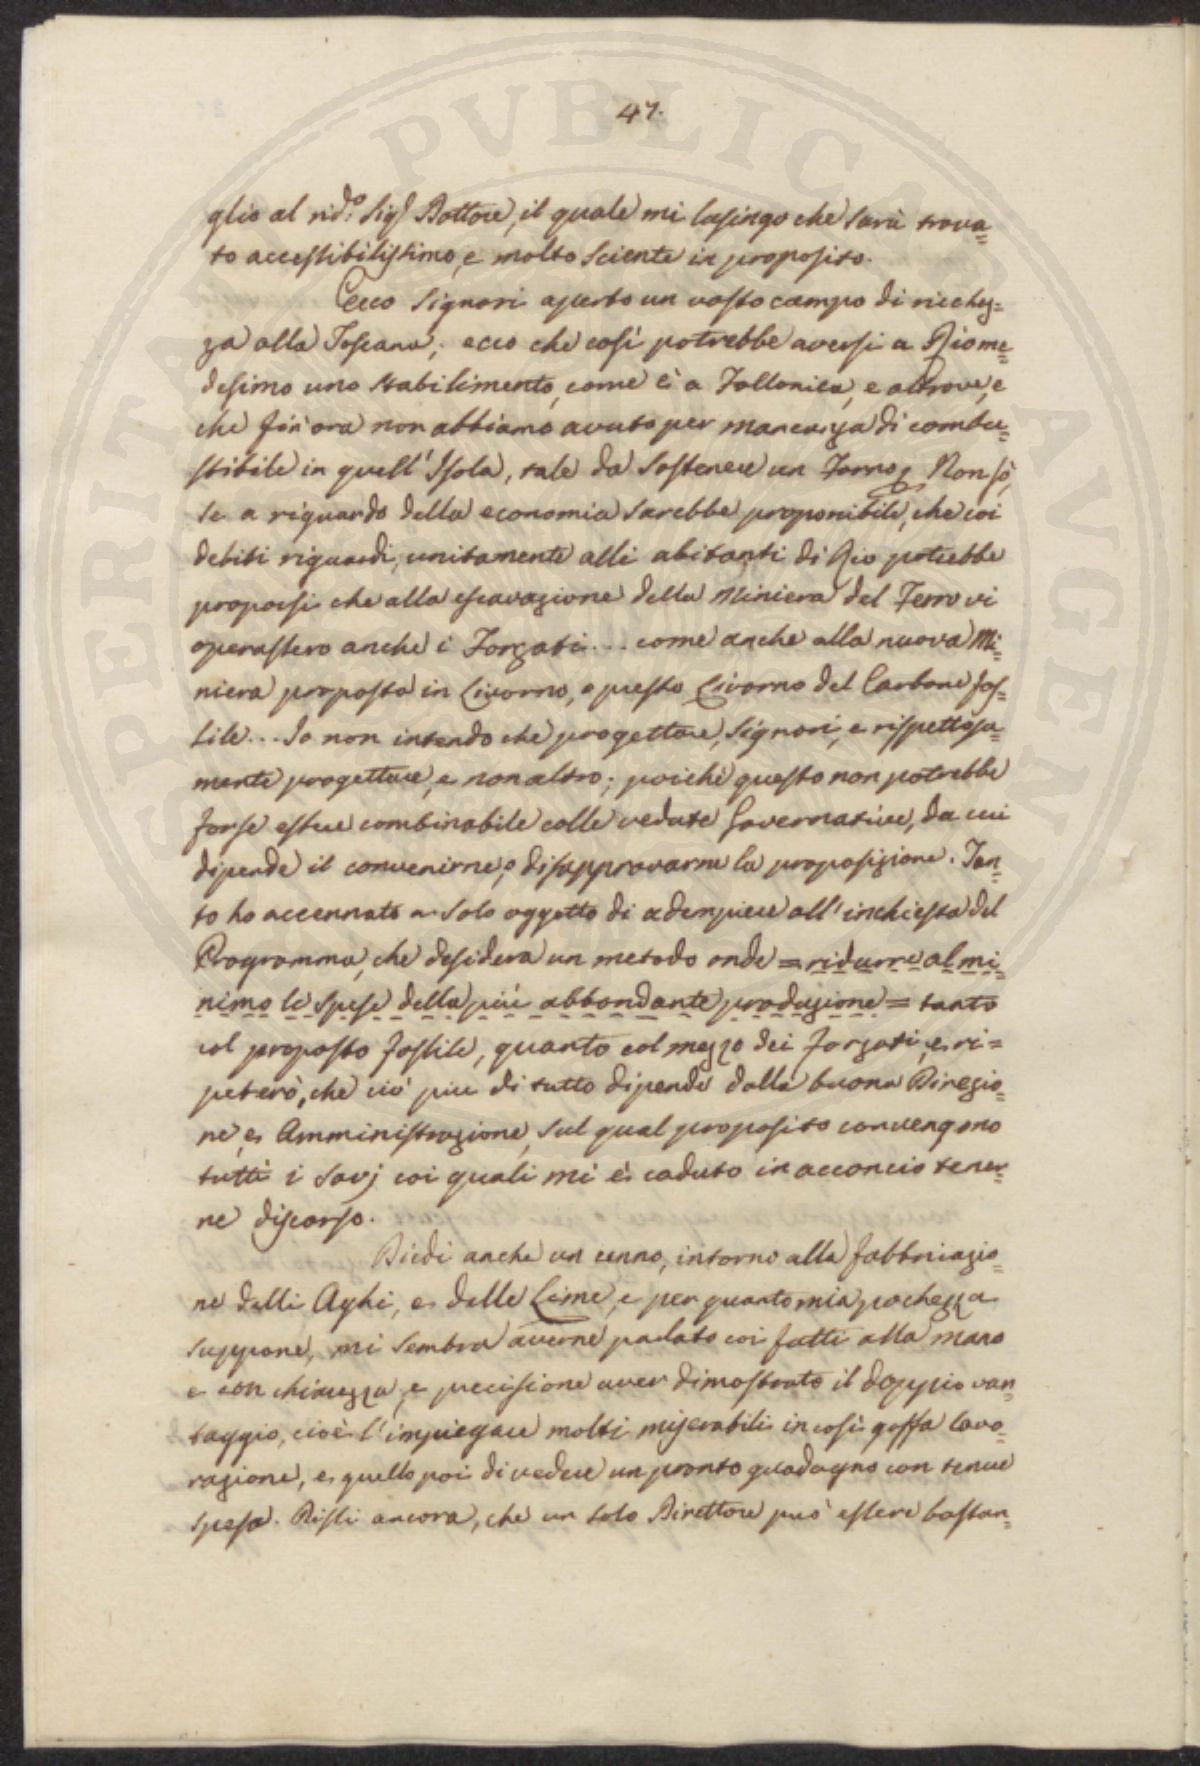 47.
glio al rid.º Sig.r Dottore, il quale mi lusingo che sarà trova=
to accessibilissimo, e molto sciente in proposito.
Ecco Signori aperto un vasto campo di ricchez=
za alla Toscana; ecco che così potrebbe aversi a Rio me=
desimo uno stabilimento, come è a Follonica, e altrove, e
che fin'ora non abbiamo avuto per mancanza di combu=
stibile in quell'Isola, tale da sostenere un Forno. Non sò,
se a riguardo della economia sarebbe proponibile, che coi
debiti riguardi, unitamente alli abitanti di Rio potrebbe
proporsi che alla escavazione della Miniera del Ferro vi
operassero anche i Forzati... come anche alla nuova Mi=
niera proposta in Livorno, o presso Livorno del Carbone fos=
sile... Io non intendo che progettare, Signori, e rispettosa=
mente progettare, e non altro; poichè questo non potrebbe
forse essere combinabile colle vedute Governative, da cui
dipende il convenirne, o disapprovarne la proposizione. Tan=
to ho accennato a solo oggetto di adempiere all'inchiesta del
Programma, che desidera un metodo onde = ridurre al mi=
nimo le spese della più abbondante produzione = tanto
col proposto fossile, quanto col mezzo dei Forzati, e ri=
peterò, che ciò più di tutto dipende dalla buona Direzio=
ne, e Amministrazione, sul qual proposito convengono
tutti i savj coi quali mi è caduto in acconcio tener=
ne discorso.
Diedi anche un cenno, intorno alla fabbricazio=
ne delli Aghi, e delle Lime, e per quanto mia pochezza
suppone, mi sembra averne parlato coi fatti alla mano
e con chiarezza, e precisione aver dimostrato il doppio van=
taggio, cioè l'impiegare molti miserabili in così goffa lavo=
razione, e quello poi di vedere un pronto guadagno con tenue
spesa. Dissi ancora, che un solo Direttore può essere bastan=
SPERITAT PVBLICA AVGEN